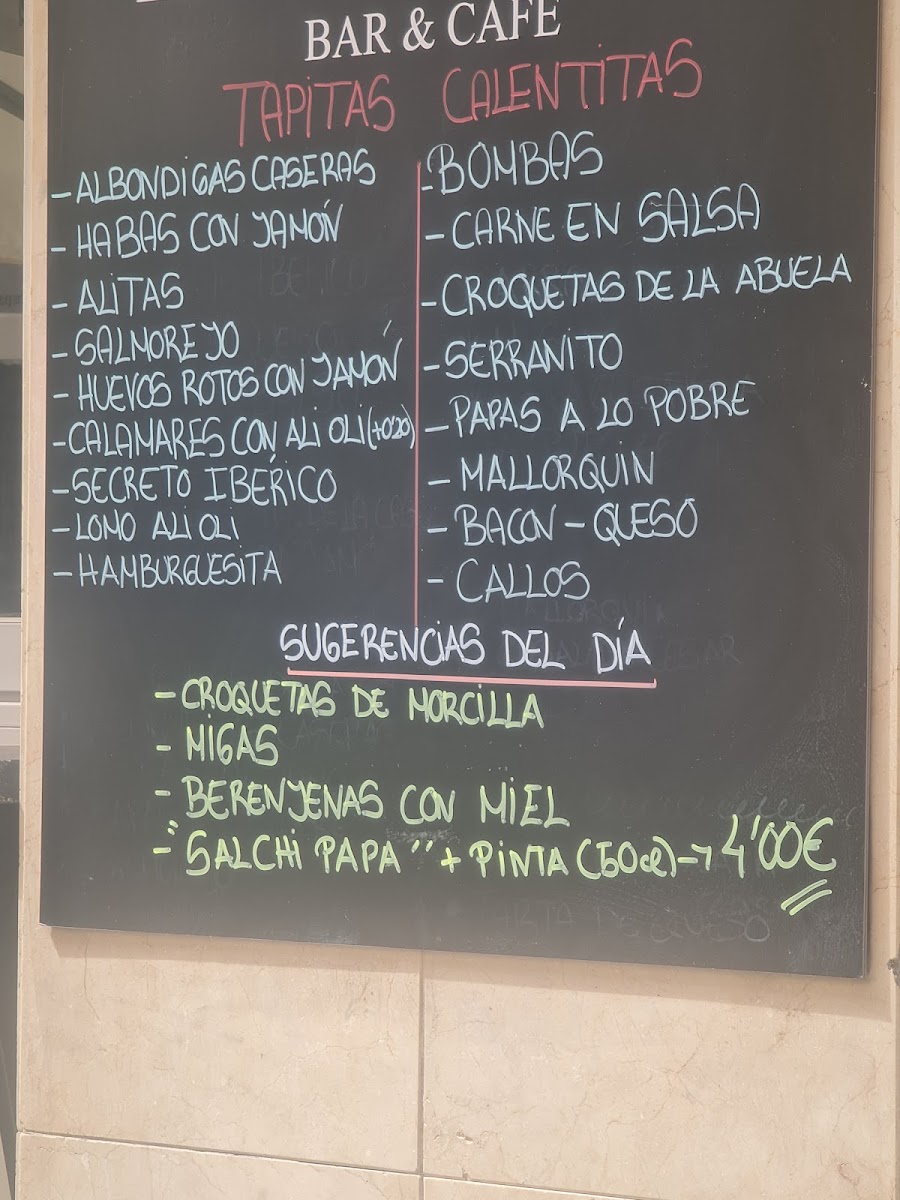 BAR & CAFE
TAPITAS CALENTITAS
- ALBONDIGAS CASERAS
- HABAS CON JAMÓN
- ALITAS
- SALMOREJO
- HUEVOS ROTOS CON JAMÓN
- CALAMARES CON ALI OLI (+0'20)
- SECRETO IBÉRICO
- LOMO ALI OLI
- HAMBURGUESITA
- BOMBAS
- CARNE EN SALSA
- CROQUETAS DE LA ABUELA
- SERRANITO
- PAPAS A LO POBRE
- MALLORQUIN
- BACON - QUESO
- CALLOS
SUGERENCIAS DEL DÍA
- CROQUETAS DE MORCILLA
- MIGAS
- BERENJENAS CON MIEL
- "SALCHI PAPA" + PINTA (50cl) → 4'00€